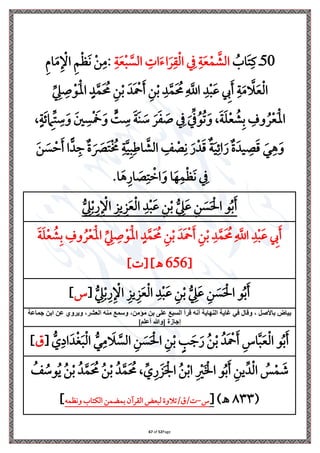 50. كِتَابُ الشَّمْعَةِ فِي الْقِرَاءَاتِ السَّبْعَةِ: مِنْ نَظْمِ الْإِمَامِ
الْعَلَّامَةِ أَبِي عَبْدِ اللَّهِ مُحَمَّدِ بْنِ أَحْمَدَ بْنِ مُحَمَّدٍ الْمَوْصِلِيِّ
الْمَعْرُوفِ بِشُعْلَةَ، وَتُوُفِّيَ فِي صَفَرَ سَنَةَ سِتٍّ وَخَمْسِينَ وَسِتِّمِائَةٍ،
وَهِيَ قَصِيدَةٌ رَائِيَّةٌ قَدْرَ نِصْفِ الشَّاطِبِيَّةِ مُخْتَصَرَةٌ جِدًّا أَحْسَنَ
فِي نَظْمِهَا وَاخْتِصَارِهَا.
أَبُو الْحَسَنِ عَلِيُّ بْنُ عَبْدِ الْعَزِيزِ الْإِرْبِلِيُّ
أَبِي عَبْدِ اللَّهِ مُحَمَّدِ بْنِ أَحْمَدَ بْنِ مُحَمَّدٍ الْمَوْصِلِيِّ الْمَعْرُوفِ بِشُعْلَةَ
[656 هـ] [ت]
أَبُو الْحَسَنِ عَلِيُّ بْنُ عَبْدِ الْعَزِيزِ الْإِرْبِلِيُّ [س]
بياض بالأصل، وقال في غاية النهاية أنه قرأ السبع على بن مؤمن، وسمع منه العشر، ويروي عن ابن جماعة
إجازة [والله أعلم]
أَبُو الْعَبَّاسِ أَحْمَدُ بْنُ رَجَبٍ بْنِ الْحَسَنِ السَّلَامِيُّ الْبَغْدَادِيُّ [ق]
شَمْسُ الدِّينِ أَبُو الْخَيْرِ ابْنُ الْجَزَرِيِّ، مُحَمَّدُ بْنُ مُحَمَّدُ بْنُ يُوسُفُ
(٨٣٣ هـ) [س-ت/ق/تلاوة لبعض القرآن بمضمن الكتاب ونظمه]